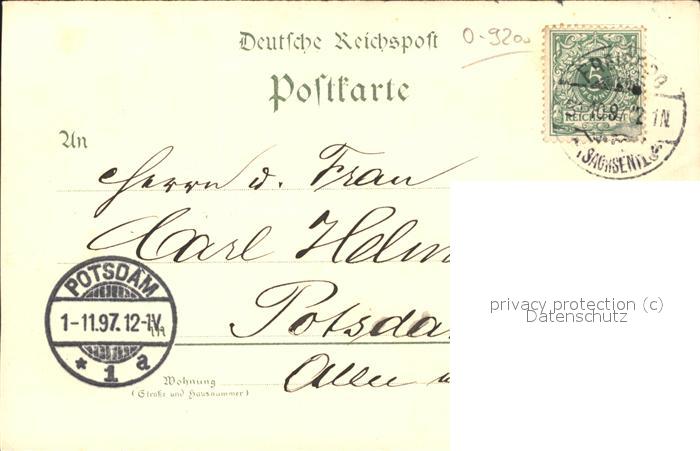 Deutsche Reichspost
0-9200
Postkarte
5
REICHSPOST
10.97 12-1N
(SACHSEN)
An
Herrn u. Frau
Carl Helm
Potsda
Allee
POTSDAM
1-11.97. 12-1V.
* 1 a
Wohnung
(Straße und Hausnummer)
privacy protection (c)
Datenschutz